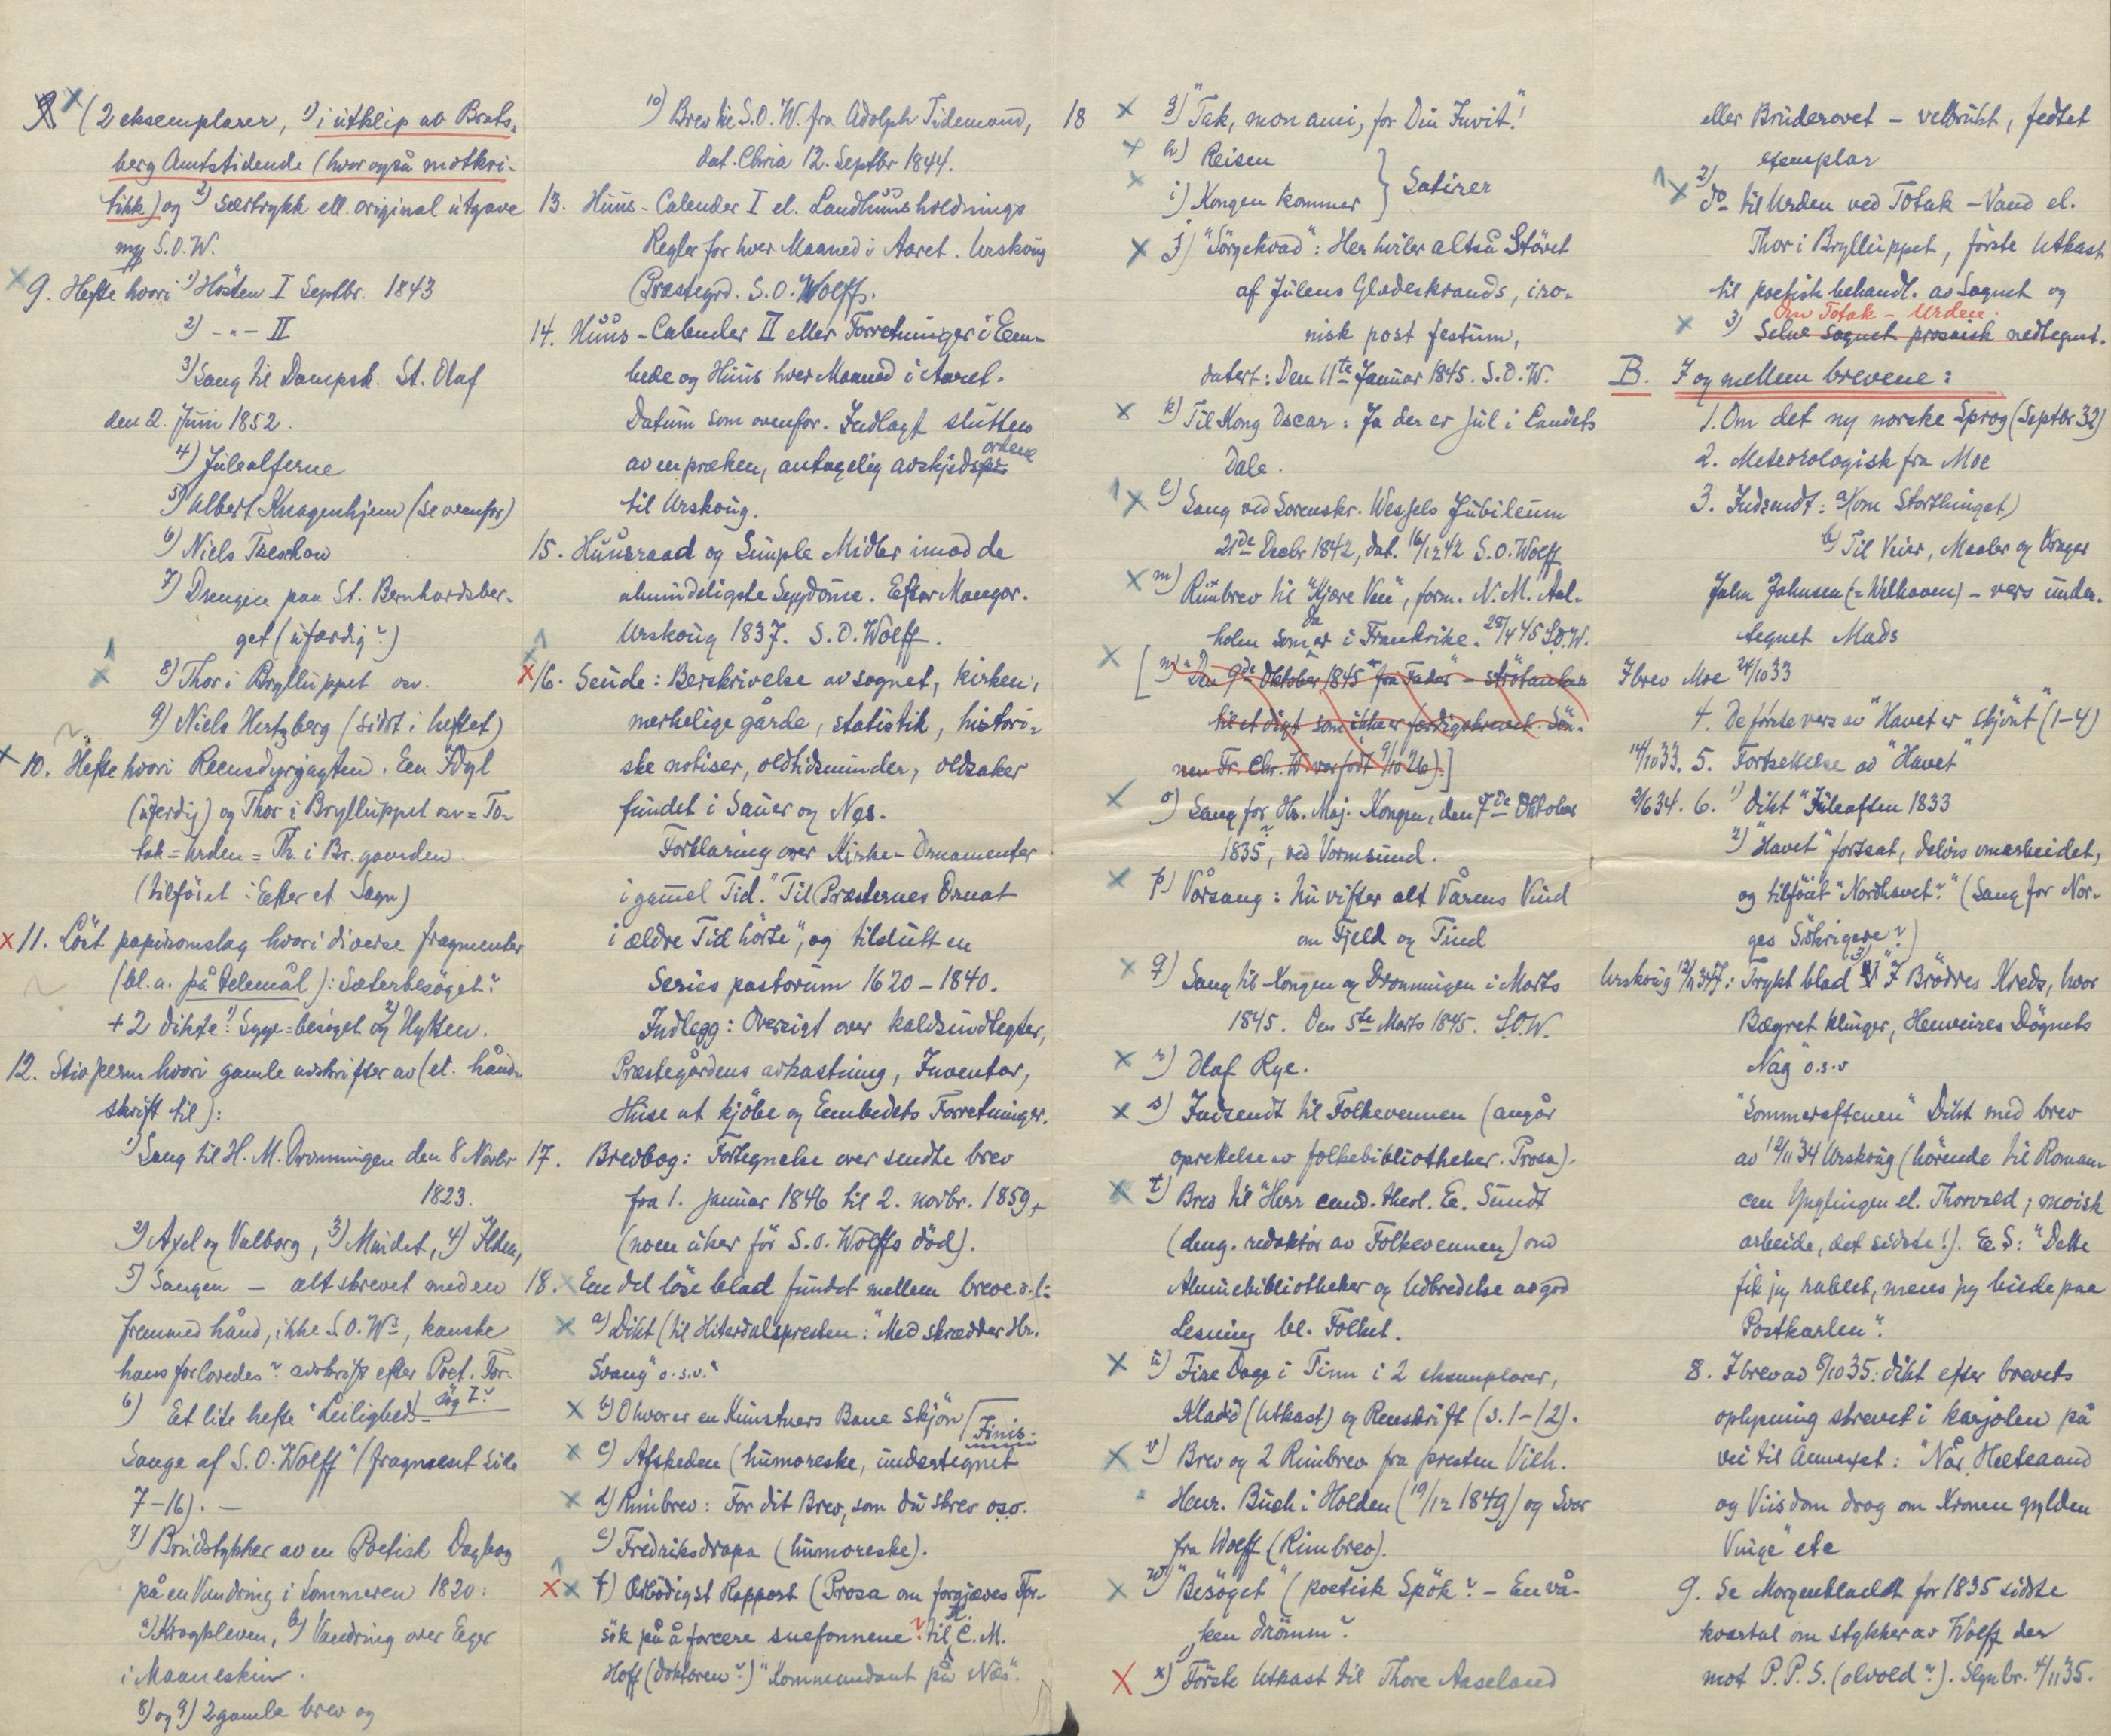 (2 eksemplarer, 1) i utklip av Brats-
berg Amtstidende (hvor også motkri-
tikk) og 2) særtrykk ell. original utgave
S.O.W.
9. Hefte hvori 1) Hösten I Septbr. 1843
2) -"- II
3) Sang til Dampsk. St. Olaf
den 2. Juni 1852.
4) Julealferne
5) Albert Knagenhjem (se ovenfor)
6) Niels Treschow
7) Drengen paa St. Bernhardsber-
get (uferdig?)
8) Thor i Brylluppet osv.
9) Niels Hertzberg (sidst i heftet)
10. Hefte hvori Reensdyrjagten. Een Idyl
(uferdig) og Thor i Brylluppet osv = To-
tak = Urden = Th. i Br. gaarden
(tilföiet: Efter et Sagn)
11. Löst papiromslag hvori diverse fragmenter
(bl.a. på telemål): Sæterbesöget?
+ 2 dikte: 1) Syge=besöget og 2) Hytten.
12. Stiv perm hvori gamle avskrifter av (el. hånd-
skrift til):
1) Sang til H.M. Dronningen den 8 Novbr
1823.
2) Axel og Valborg, 3) Mindet, 4) Ilden,
5) Sangen – alt skrevet med en
fremmed hånd, ikke S.O.Ws, kanske
hans forlovedes? avskrift efter Poet. For-
søg I?
6) Et lite hefte "Leiligheds-
Sange af S.O. Wolff" (fragment side
7-16). –
7) Brudstykker av en Poetisk Dagbog
på en Vandring i Sommeren 1820:
a) Krogkleven, b) Vandring over Eger
i Maaneskin.
8) og 9) 2 gamle brev og
10) Brev til S.O.W. fra Adolph Tidemand,
dat. Chria 12. Septbr 1844.
13. Huus-Calender I el. Landhuusholdnings
Regler for hver Maaned i Aaret. Urskoug
Præstegrd. S.O. Wolff.
14. Huus-Calender II eller Forretninger i Eem-
bede og Huus hver Maaned i Aaret.
Datum som ovenfor. Indlagt slutten
av en præken, antagelig avskjedsordene
til Urskoug.
15. Huusraad og Simple Midler imod de
almindeligste Sygdomme. Efter Mangor.
Urskoug 1837. S.O. Wolff.
16. Seude: Berskrivelse av sognet, kirken,
merkelige gårde, statistik, histori-
ske notiser, oldtidsminder, oldsaker
fundet i Sauer og Nes.
Forklaring over Kirke-Ornamenter
i gammel Tid." Til Præsternes Ornat
i ældre Tid hörte", og tilslutt en
Series pastorum 1620 – 1840.
Indlegg: Oversigt over kaldsindtegter,
Præstegårdens avkastning, Inventar,
Huse at kjöbe og Eembedets Forretninger.
17. Brevbog: Fortegnelse over sendte brev
fra 1. januar 1846 til 2. novbr. 1859,
(noen uker för S.O. Wolffs död).
18. En del löse blad fundet mellem breve o.l:
a) Dikt (til Hiterdalspresten: "Med skrædder Hr.
Svang" o.s.v.
b) O hvor er en Kunstners Bane skjön
c) Afskeden (humoreske, undertegnet Finis.
d) Rimbrev: For dit Brev, som du skrev osv.
e) Fredriksdrapa (humoreske).
f) Ærbödigst Rapport (Prosa om forgjæves For-
sök på å forcere snefonnene? til H. C.M.
Hoff (doktoren?) "Kommandant på Næs".
18
g) "Tak, mon ami, for Din Invit"!
h) Reisen
i) Kongen kommer } Satirer
j) "Sörgekvad": Her hviler altså Stövet
af Julens Glædeskrands, iro-
nisk post festum,
datert: Den 11te Januar 1845. S.O.W.
k) Til Kong Oscar: Ja der er Jul i Landets
Dale.
l) Sang ved Sorenskr. Wessels Jubileum
21de Decbr 1842, dat. 16/12 42 S.O. Wolff
m) Rimbrev til "Kjære Ven", form. N.M. Aal-
holm som da er i Frankrike. 28/4 45 S.O.W.
[n) "Den 9de Oktober 1845" fra Fader" – strötanker
til et digt som ikke er færdigskrevet. Sön-
nen Fr. Chr. W var født 9/10 26).]
o) Sang for Hs. Maj. Kongen, den 7de Oktober
1835?, ved Vormsund.
p) Vårsang: Nu vifter alt Vårens Vind
om Fjeld og Tind
q) Sang til Kongen og Dronningen i Marts
1845. Den 5te Marts 1845. S.O.W.
r) Olaf Rye.
s) Indsendt til Folkevennen (angår
oprettelse av folkebibliotheker. Prosa).
t) Brev til "Herr cand. theol. E. Sundt
(deng. redaktör av Folkevennen) om
Almuebibliotheker og Udbredelse av god
Lesning bl. Folket.
u) Fire Dage i Tinn i 2 eksemplarer,
Kladd (Utkast) og Renskrift (s. 1-12).
v) Brev og 2 Rimbrev fra presten Vilh.
Henr. Buch i Holden (19/12 1849) og Svar
fra Wolff (Rimbrev).
w) "Besöget" (poetisk Spök? – En vå-
ken drömm?
x) Förste Utkast til Thore Aaseland
eller Bruderovet – velbrukt, fedtet
exemplar
2) do til Urden ved Totak-Vand el.
Thor i Brylluppet, förste Utkast
til poetisk behandl. av Sagnet og
Om Totak – Urden.
3) Selve Sagnet prosaisk nedtegnet.
B. I og mellem brevene:
1. Om det ny norske Sprog (Septbr 32)
2. Meteorologisk fra Moe
3. Indsendt: a) (om Storthinget)
b) Til Veier, Maaler og Vrager
John Johnsen (= Welhaven) – vers under-
tegnet Mads
I brev Moe 24/10 33
4. De förste vers av "Havet er skjönt" (1-4)
14/10 33. 5. Fortsettelse av "Havet"
2/6 34. 6. 1) Dikt "Juleaften 1833
2) "Havet" fortsat, delvis omarbeidet,
og tilföiet "Nordhavet?" (Sang for Nor-
ges Sökrigere?)
Urskoug 12/11 34 7: Trykt blad 3) "I Brödres Kreds, hvor
Bægret klinger, Henveires Dögnets
Nag" o.s.v
"Sommeraftenen" Dikt med brev
av 12/11 34 Urskoug (hörende til Roman-
cen Ynglingen el. Thorvald; moisk
arbeide, det sidste!). E.S: "Dette
fik jeg rablet, mens jeg biede paa
Postkarlen".
8. I brev av 8/10 35: dikt efter brevets
oplysning skrevet i karjolen på
vei til Annexet: "Når Helteaand
og Viisdom drog om Kronen gylden
Vinge" etc
9. Se Morgenbladet for 1835 sidste
kvartal om stykker av Wolff der
mot P.P.S. (olvold?). Slgn br. 4/11 35.